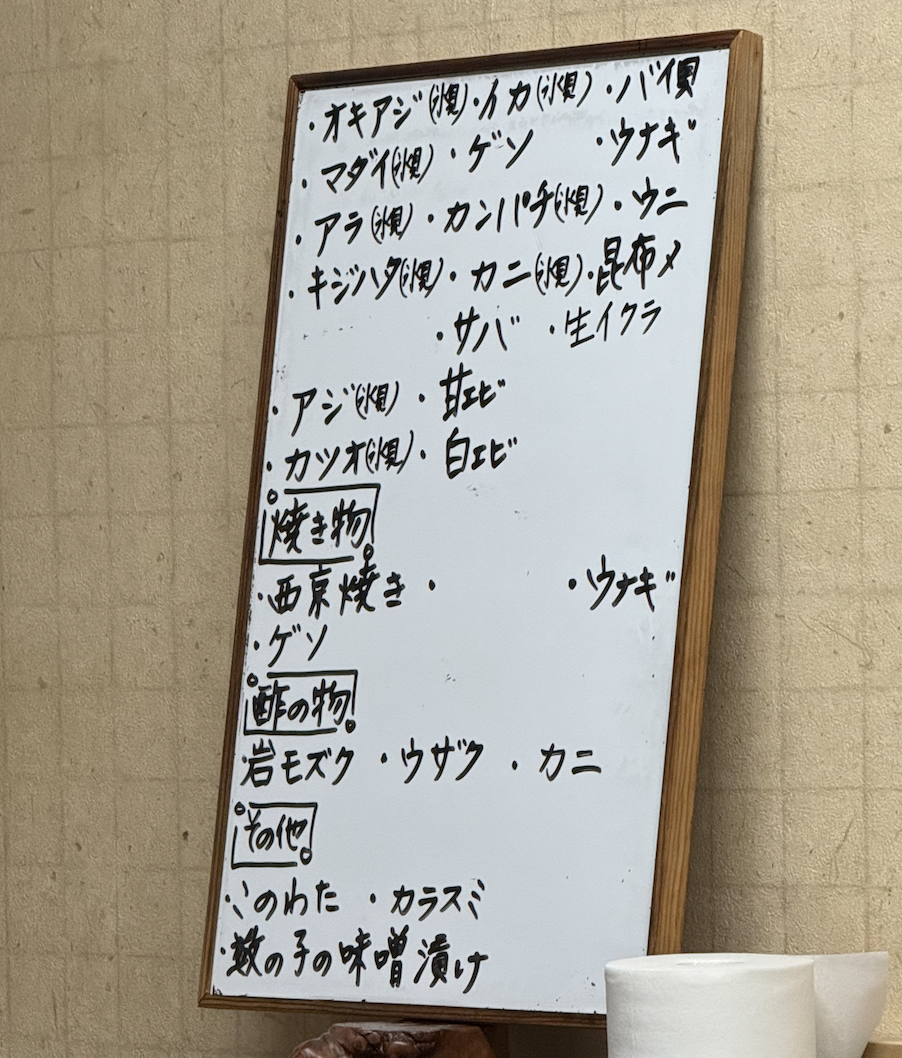 ・オキアジ(氷見)・イカ(氷見)・バイ貝
・マダイ(氷見)・ゲソ ・ウナギ
・アラ(氷見)・カンパチ(氷見)・ウニ
・キジハタ(氷見)・カニ(氷見)・昆布〆
・サバ ・生イクラ
・アジ(氷見)・甘エビ
・カツオ(氷見)・白エビ
焼き物
・西京焼き・ ・ウナギ
・ゲソ
酢の物
岩モズク ・ウザク ・カニ
その他
・このわた ・カラスミ
・数の子の味噌漬け